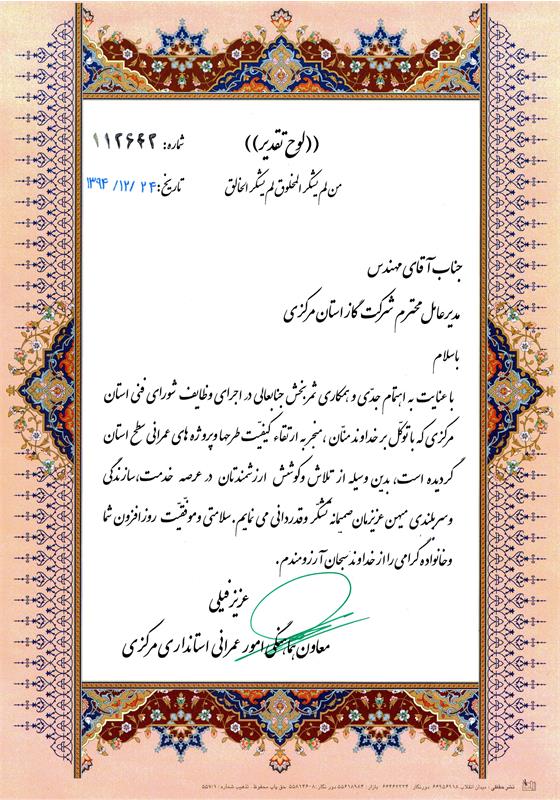 ((لوح تقدیر))
شماره: ۱۱۲۶۶۲
من لم یشکر المخلوق لم یشکر الخالق
تاریخ: ۱۳۹۴/۱۲/۲۴
جناب آقای مهندس
مدیرعامل محترم شرکت گاز استان مرکزی
باسلام
باعنایت به اهتمام جدّی و همکاری ثمربخش جنابعالی در اجرای وظایف شورای فنی استان
مرکزی که باتوکّل بر خداوند منّان ، منجر به ارتقاء کیفیّت طرحها و پروژه های عمرانی سطح استان
گردیده است، بدین وسیله از تلاش وکوشش ارزشمندتان در عرصه خدمت،سازندگی
وسربلندی میهن عزیزمان صمیمانه تشکّر وقدردانی می نمایم.سلامتی وموفقیّت روزافزون شما
وخانواده گرامی را از خداوند سبحان آرزومندم.
عزیز فیلی
معاون هماهنگی امور عمرانی استانداری مرکزی
نشر حفاظی : میدان انقلاب ۶۶۹۵۶۱۱۸ دورنگار ۶۶۴۶۷۲۲۴ بازار : ۵۵۶۱۸۹۸۴ دور نگار ۵۵۸۱۴۶۰۸ حق چاپ محفوظ - تذهیب شماره : ۵۵۷/۱